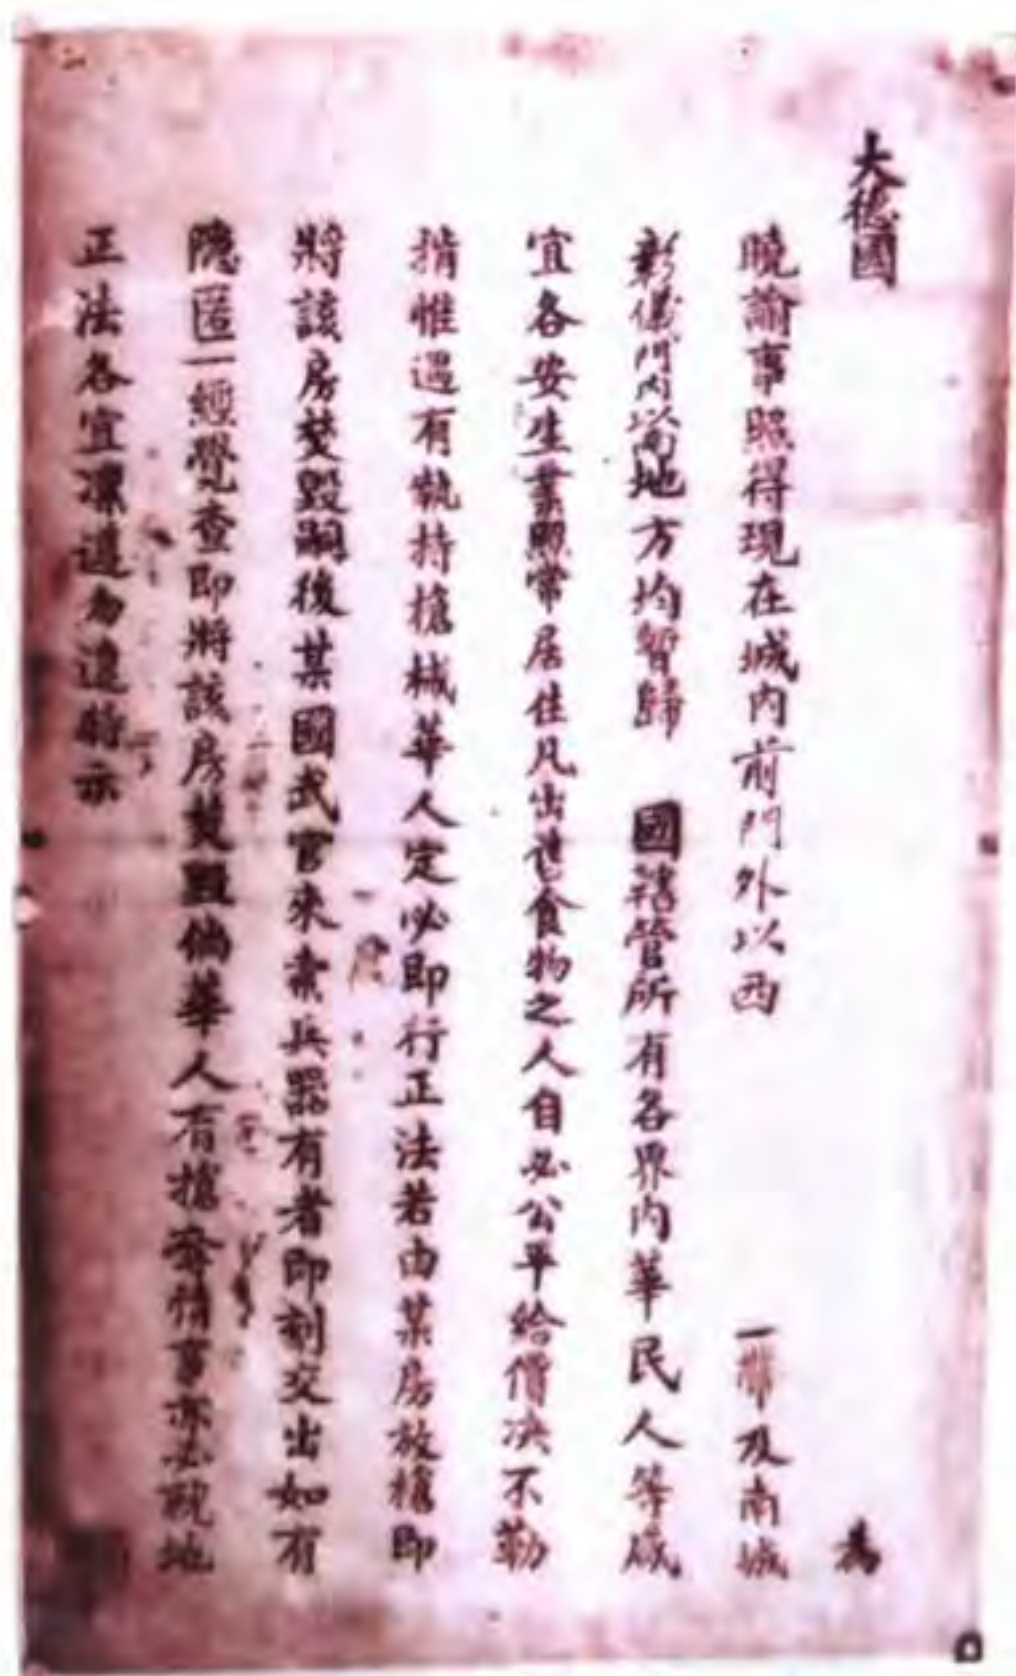 大德國 為
曉諭事照得現在城內前門外以西 一帶及南城
彰儀門內以南地方均暫歸 國轄管所有各界內華民人等咸
宜各安生業照常居住凡出售食物之人自必公平給價決不勒
掯惟遇有執持槍械華人定必即行正法若由某房放槍即
將該房焚毀嗣後某國武官來索兵器有者即刻交出如有
隱匿一經覺查即將該房焚毀倘華人有搶奪情事亦必就地
正法各宜凜遵勿違特示